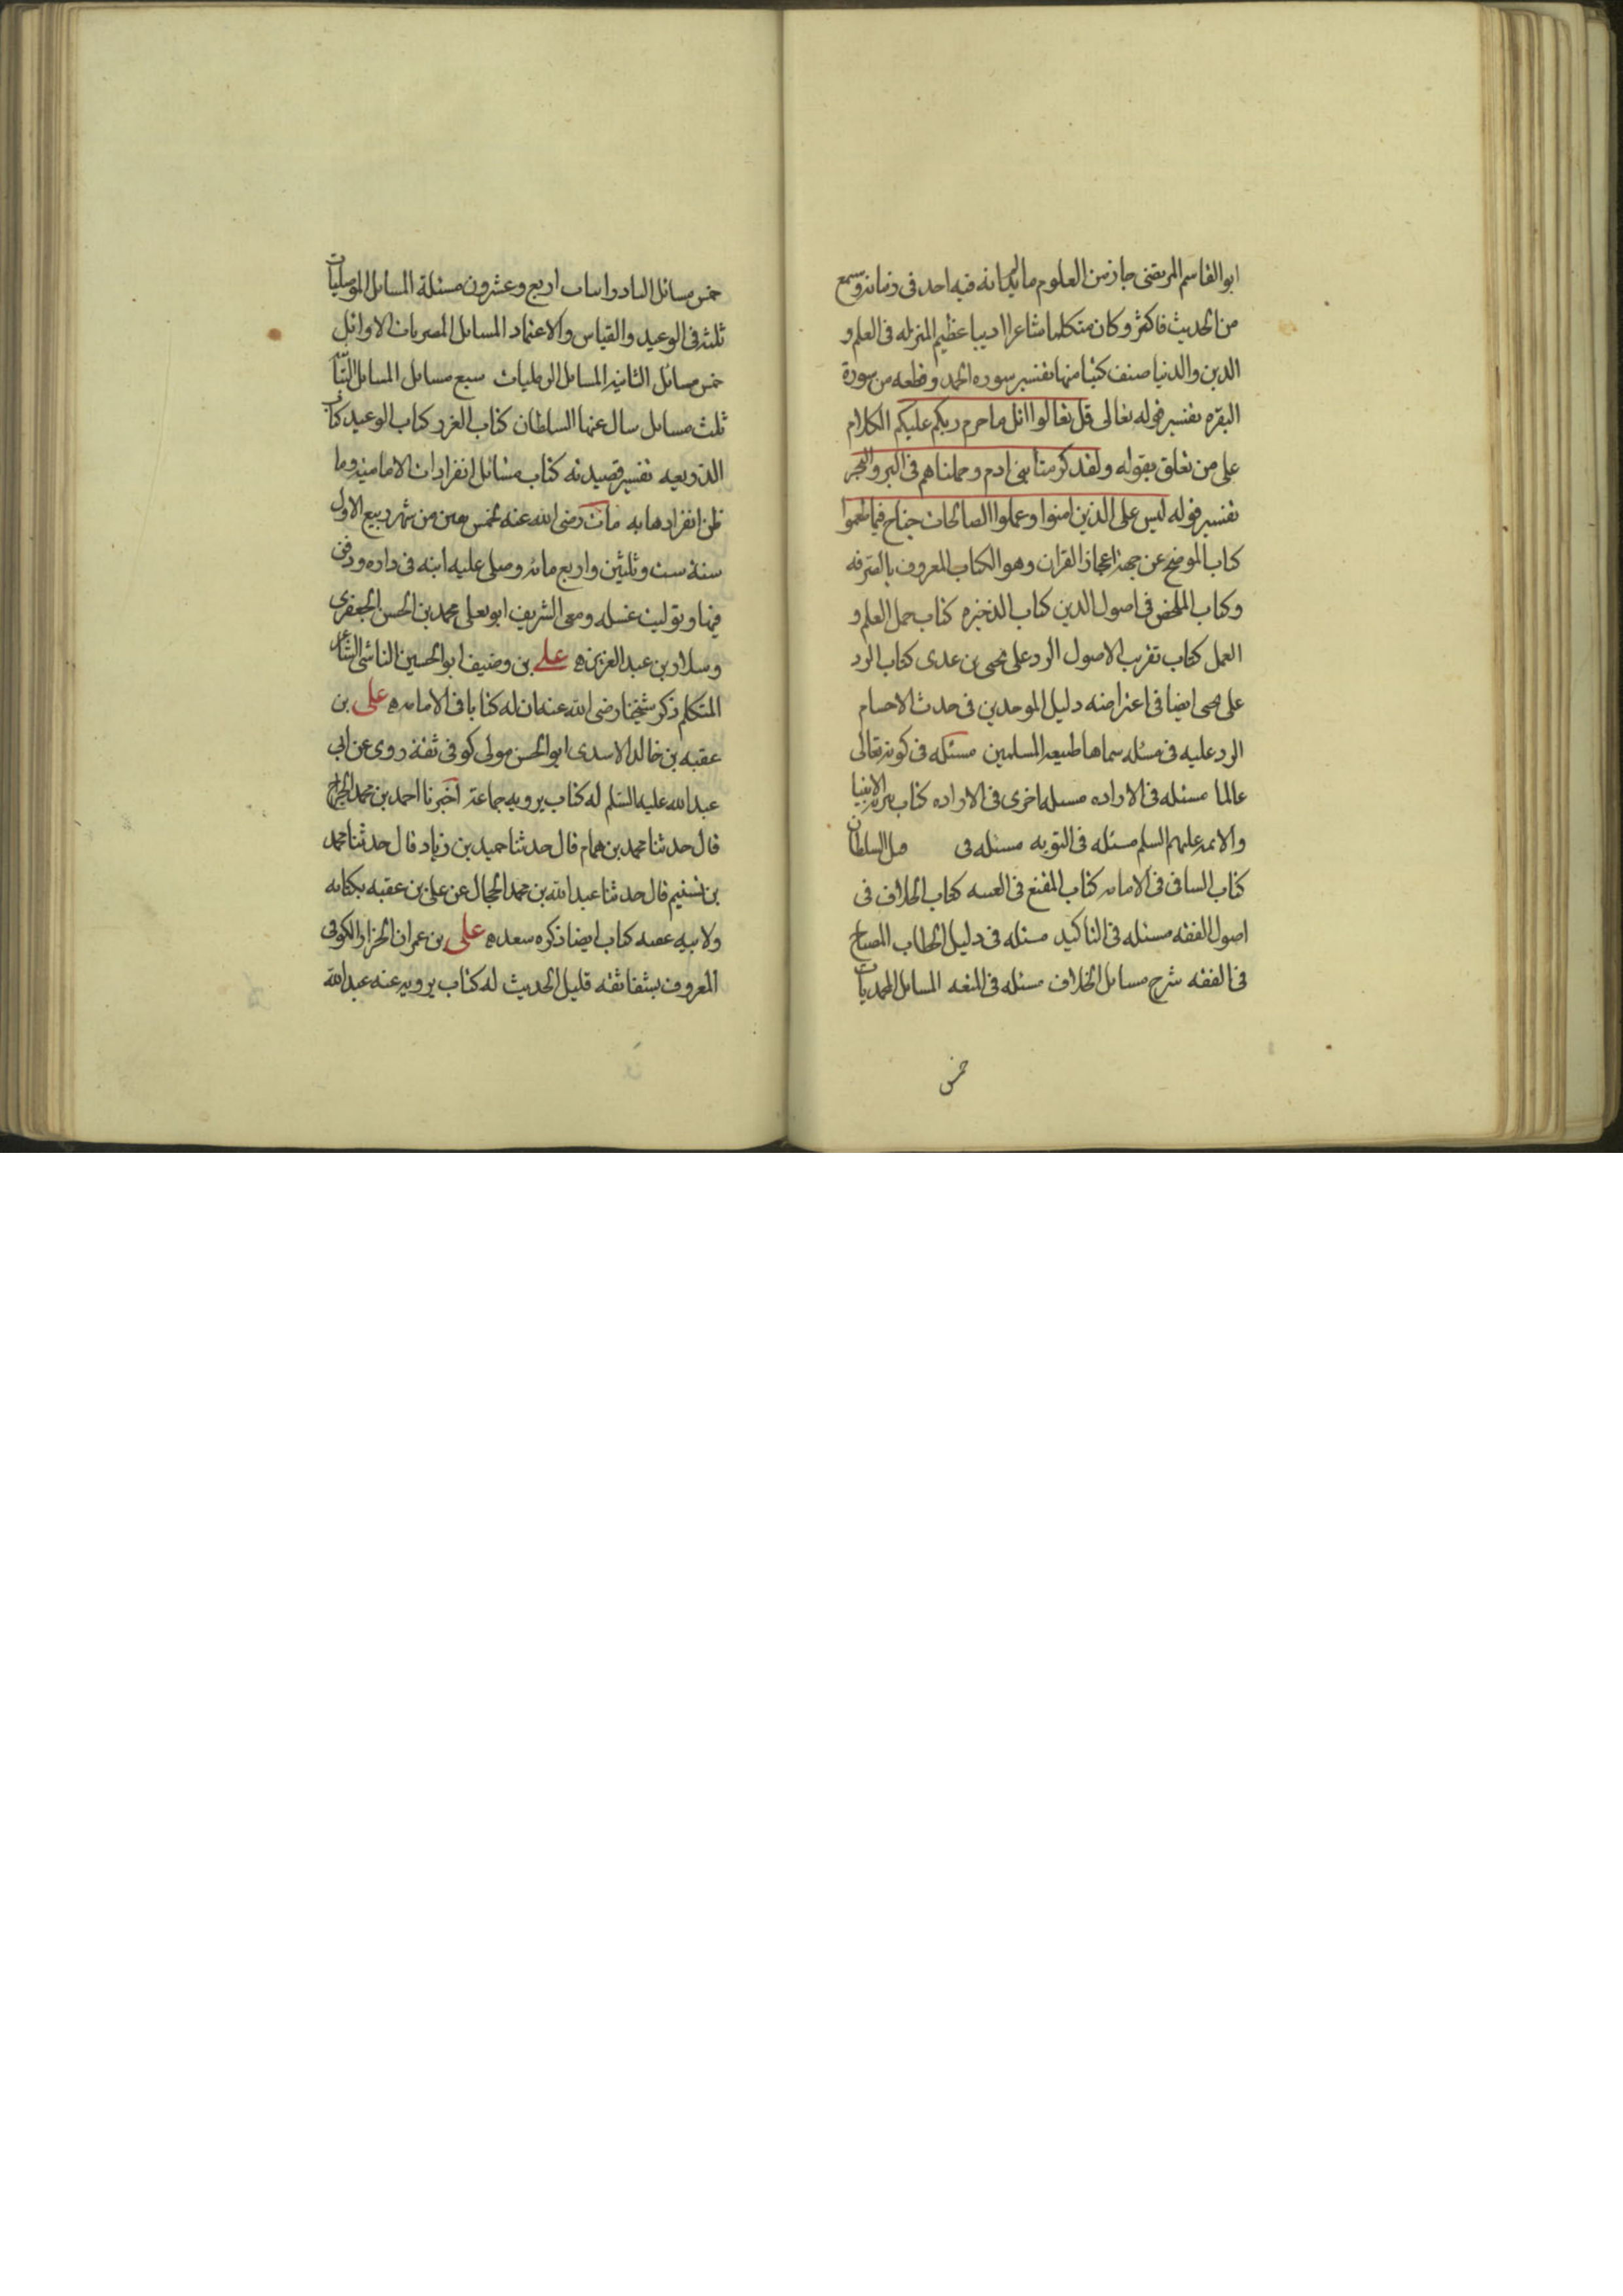 ابوالقاسم المرتضى حاز من العلوم ما لم يدانه فيه احد فى زمانه وسمع
من الحديث فاكثر وكان متكلما شاعرا اديبا عظيم المنزله فى العلم و
الدين والدنيا صنف كتبا منها تفسير سوره الحمد وقطعه من سورة
البقره تفسير قوله تعالى قل تعالوا اتل ما حرم ربكم عليكم الكلام
على من تعلق بقوله ولقد كرمنا بنى ادم وحملناهم فى البر والبحر
تفسير قوله ليس على الذين امنوا وعملوا الصالحات جناح فيما طعموا
كتاب الموضح عن جهة اعجاز القران وهو الكتاب المعروف بالصرفه
وكتاب الملخص فى اصول الدين كتاب الذخيره كتاب جمل العلم و
العمل كتاب تقريب الاصول الرد على يحيى بن عدى كتاب الرد
على يحيى ايضا فى اعتراضه دليل الموحدين فى حدث الاجسام
الرد عليه فى مسئله سماها طبيعه المسلمين مسئله فى كونه تعالى
عالما مسئله فى الاراده مسئله اخرى فى الاراده كتاب تنزيه الانبيا
والائمه عليهم السلم مسئله فى التوبه مسئله فى السلطان
كتاب الشافى فى الامامه كتاب المقنع فى الغيبه كتاب الخلاف فى
اصول الفقه مسئله فى التاكيد مسئله فى دليل الخطاب المصباح
فى الفقه شرح مسائل الخلاف مسئله فى المتعه المسائل المحمديات
خمس
خمس مسائل اربع وعشرون مسئلة المسائل الموصليات
ثلثه فى الوعيد والقياس والاعتماد المسائل المصريات الاوائل
خمس مسائل الثانيه المسائل الرمليات سبع مسائل المسائل
ثلث مسائل سال عنها السلطان كتاب الغرر كتاب الوعيد كتاب
الذريعه تفسير قصيدته كتاب مسائل انفرادات الاماميه وما
ظن انفرادها به مات رضى الله عنه لخمس بقين من شهر ربيع الاول
سنة ست وثلثين واربع مائه وصلى عليه ابنه فى داره ودفن
فيها وتوليت غسله ومعى الشريف ابو يعلى محمد بن الحسن الجعفرى
وسلار بن عبد العزيز ه على بن وصيف ابو الحسين الناشى الشاعر
المتكلم ذكر شيخنا رضى الله عنه ان له كتابا فى الامامه ه على بن
عقبه بن خالد الاسدى ابو الحسن مولى كوفى ثقة روى عن ابى
عبد الله عليه السلم له كتاب يرويه جماعة اخبرنا احمد بن محمد الجراح
قال حدثنا محمد بن همام قال حدثنا حميد بن زياد قال حدثنا محمد
بن تسنيم قال حدثنا عبد الله بن محمد الحجال عن على بن عقبه بكتابه
ولابيه عقبه كتاب ايضا ذكره سعد ه على بن عمران الخزاز الكوفى
المعروف بشفا ثقه قليل الحديث له كتاب يرويه عنه عبد الله